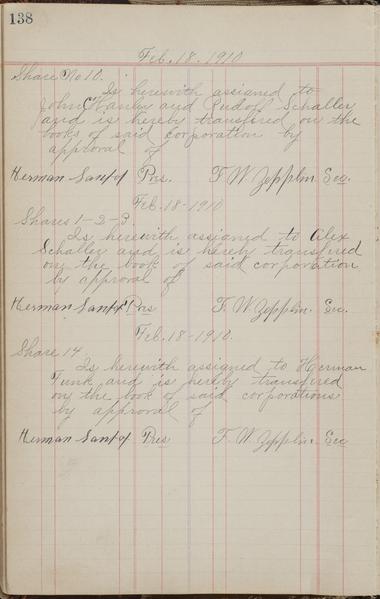 138
Feb. 18. 1910
Share No 10.
Is herewith assigned to
John C Hanley and Rudolf Schalley
and is hereby transfered on the
books of said corporation by
approval of
Herman Sanfox Pres. F. W. Zepplin. Sec.
Feb. 18-1910
Shares 1-2-3
Is herewith assigned to Alex
Schalley and is hereby transfered
on the book of said corporation
by approval of
Herman Sanfox Pres F. W. Zepplin. Sec.
Feb. 18-1910.
Share 14
Is herewith assigned to Herman
Funk and is hereby transfired
on the book of said corporations
by approval of
Herman Sanfox Pres F. W. Zepplin. Sec